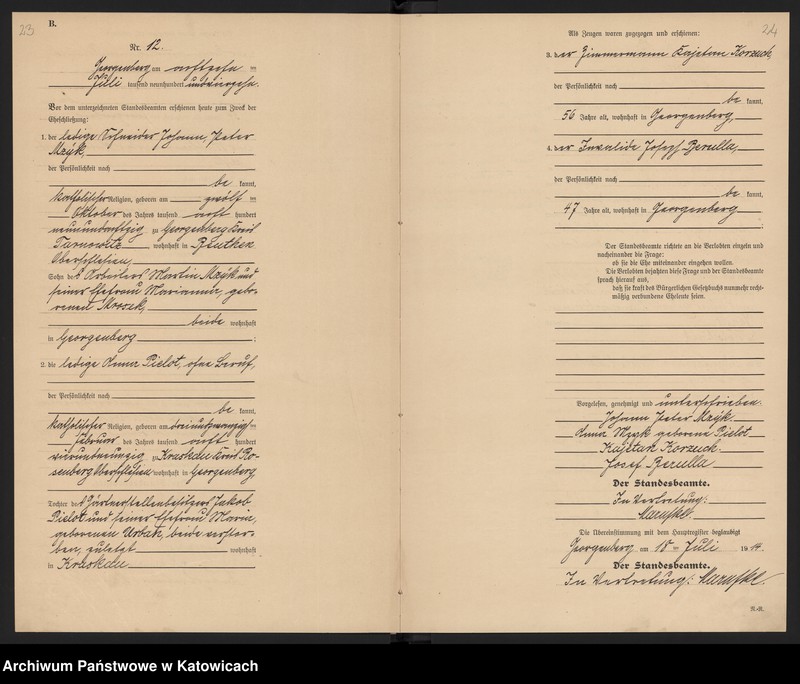 23
B.
Nr. 12.
Georgenberg am achtzehn ten
Juli tausend neunhundert und vierzehn.
Vor dem unterzeichneten Standesbeamten erschienen heute zum Zweck der
Eheschließung:
1. der ledige Schneider Johann, Peter
Mzyk,
der Persönlichkeit nach
be kannt,
katholischer Religion, geboren am zwölf ten
Oktober des Jahres tausend acht hundert
neunundachtzig zu Georgenberg Kreis
Tarnowitz wohnhaft in Beuthen
Oberschlesien,
Sohn des Arbeiters Martin Mzyk und
seiner Ehefrau Marianna, gebo-
renen Mrozek,
beide wohnhaft
in Georgenberg ;
2. die ledige Anna Pielot, ohne Beruf,
der Persönlichkeit nach
be kannt,
katholischer Religion, geboren am dreiundzwanzig ten
Februar des Jahres tausend acht hundert
vierundneunzig zu Kraskau Kreis Ro-
senberg Oberschlesien wohnhaft in Georgenberg,
Tochter des Gärtnerstellenbesitzers Jakob
Pielot und seiner Ehefrau Maria,
geborenen Urbak, beide verstor-
ben, zuletzt wohnhaft
in Kraskau
24
Als Zeugen waren zugezogen und erschienen:
3. der Zimmermann Kajetan Korzuch,
der Persönlichkeit nach
be kannt,
56 Jahre alt, wohnhaft in Georgenberg,
4. der Invalide Josef Berulla,
der Persönlichkeit nach
be kannt,
47 Jahre alt, wohnhaft in Georgenberg
Der Standesbeamte richtete an die Verlobten einzeln und
nacheinander die Frage:
ob sie die Ehe miteinander eingehen wollen.
Die Verlobten bejahten diese Frage und der Standesbeamte
sprach hierauf aus,
daß sie kraft des Bürgerlichen Gesetzbuchs nunmehr recht-
mäßig verbundene Eheleute seien.
Vorgelesen, genehmigt und unterschrieben.
Johann Peter Mzyk
Anna Mzyk geborene Pielot
Kajetan Korzuch.
Josef Berulla
Der Standesbeamte.
In Vertretung:
Die Übereinstimmung mit dem Hauptregister beglaubigt
Georgenberg am 18 ten Juli 19 14.
Der Standesbeamte.
In Vertretung:
R.-R.
Archiwum Państwowe w Katowicach